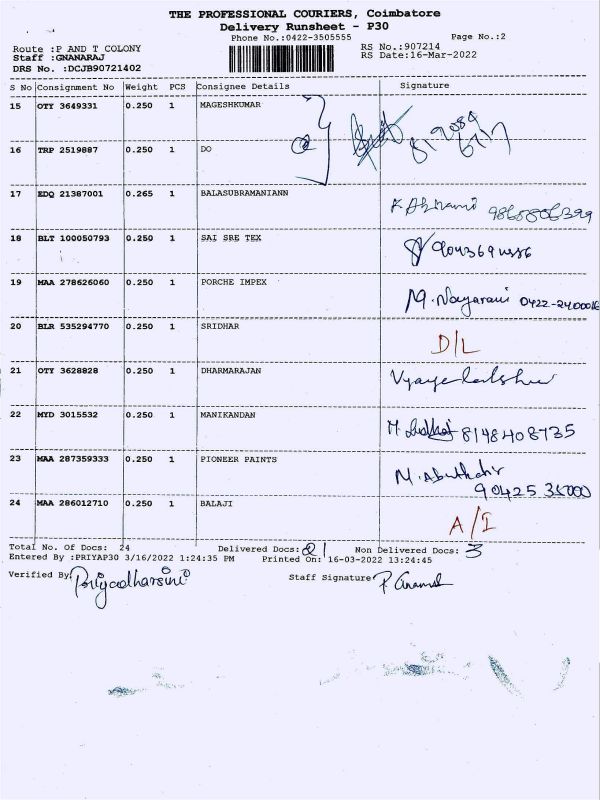 THE PROFESSIONAL COURIERS, Coimbatore
Delivery Runsheet - P30
Phone No.:0422-3505555 Page No.:2
Route :P AND T COLONY RS No.:907214
Staff :GNANARAJ RS Date:16-Mar-2022
DRS No. :DCJB90721402
S No Consignment No Weight PCS Consignee Details Signature
15 OTY 3649331 0.250 1 MAGESHKUMAR
16 TRP 2519887 0.250 1 DO
17 EDQ 21387001 0.265 1 BALASUBRAMANIANN
18 BLT 100050793 0.250 1 SAI SRE TEX
19 MAA 278626060 0.250 1 PORCHE IMPEX M. 0422-2400016
20 BLR 535294770 0.250 1 SRIDHAR D/L
21 OTY 3628828 0.250 1 DHARMARAJAN
22 MYD 3015532 0.250 1 MANIKANDAN M. 8148408735
23 MAA 287359333 0.250 1 PIONEER PAINTS M. Abuthahir
90425 35000
24 MAA 286012710 0.250 1 BALAJI A/I
Total No. Of Docs: 24 Delivered Docs: 21 Non Delivered Docs: 3
Entered By :PRIYAP30 3/16/2022 1:24:35 PM Printed On: 16-03-2022 13:24:45
Verified By Priyadharsini Staff Signature